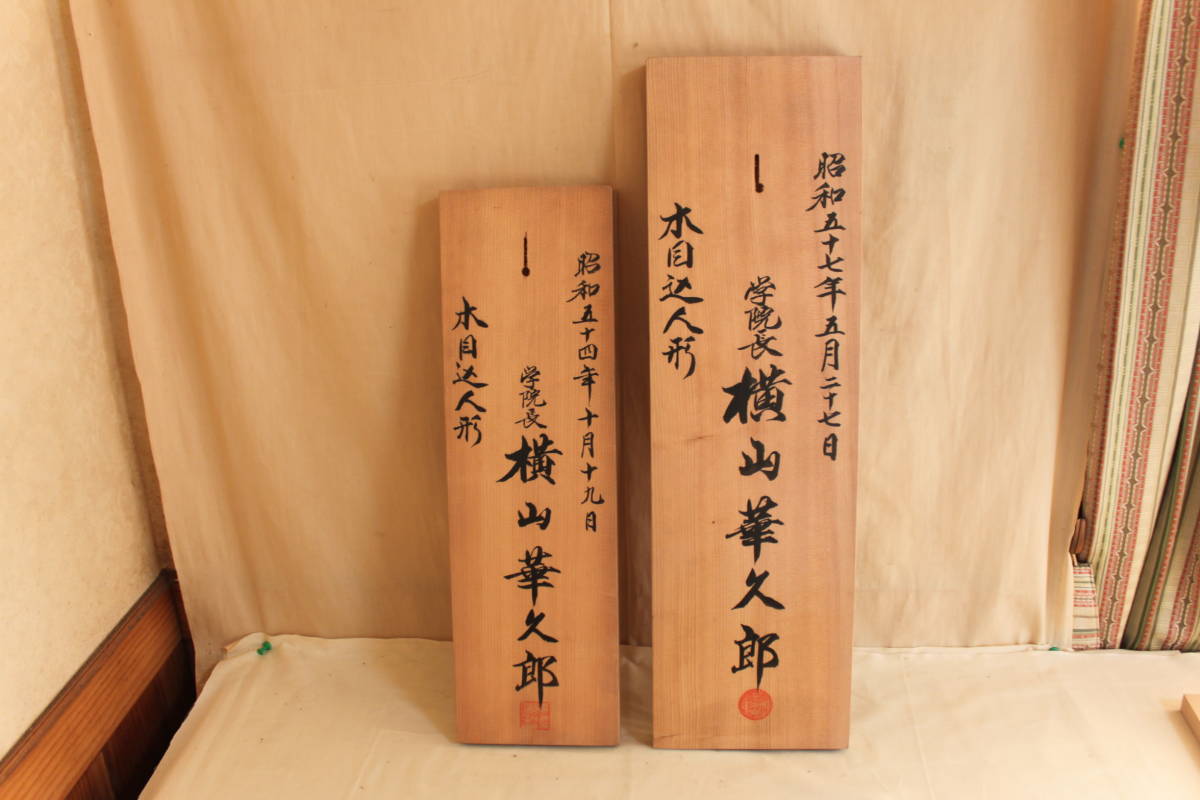 昭和五十七年五月二十七日
学院長 横山華久郎
木目込人形
昭和五十四年十月十九日
学院長 横山華久郎
木目込人形